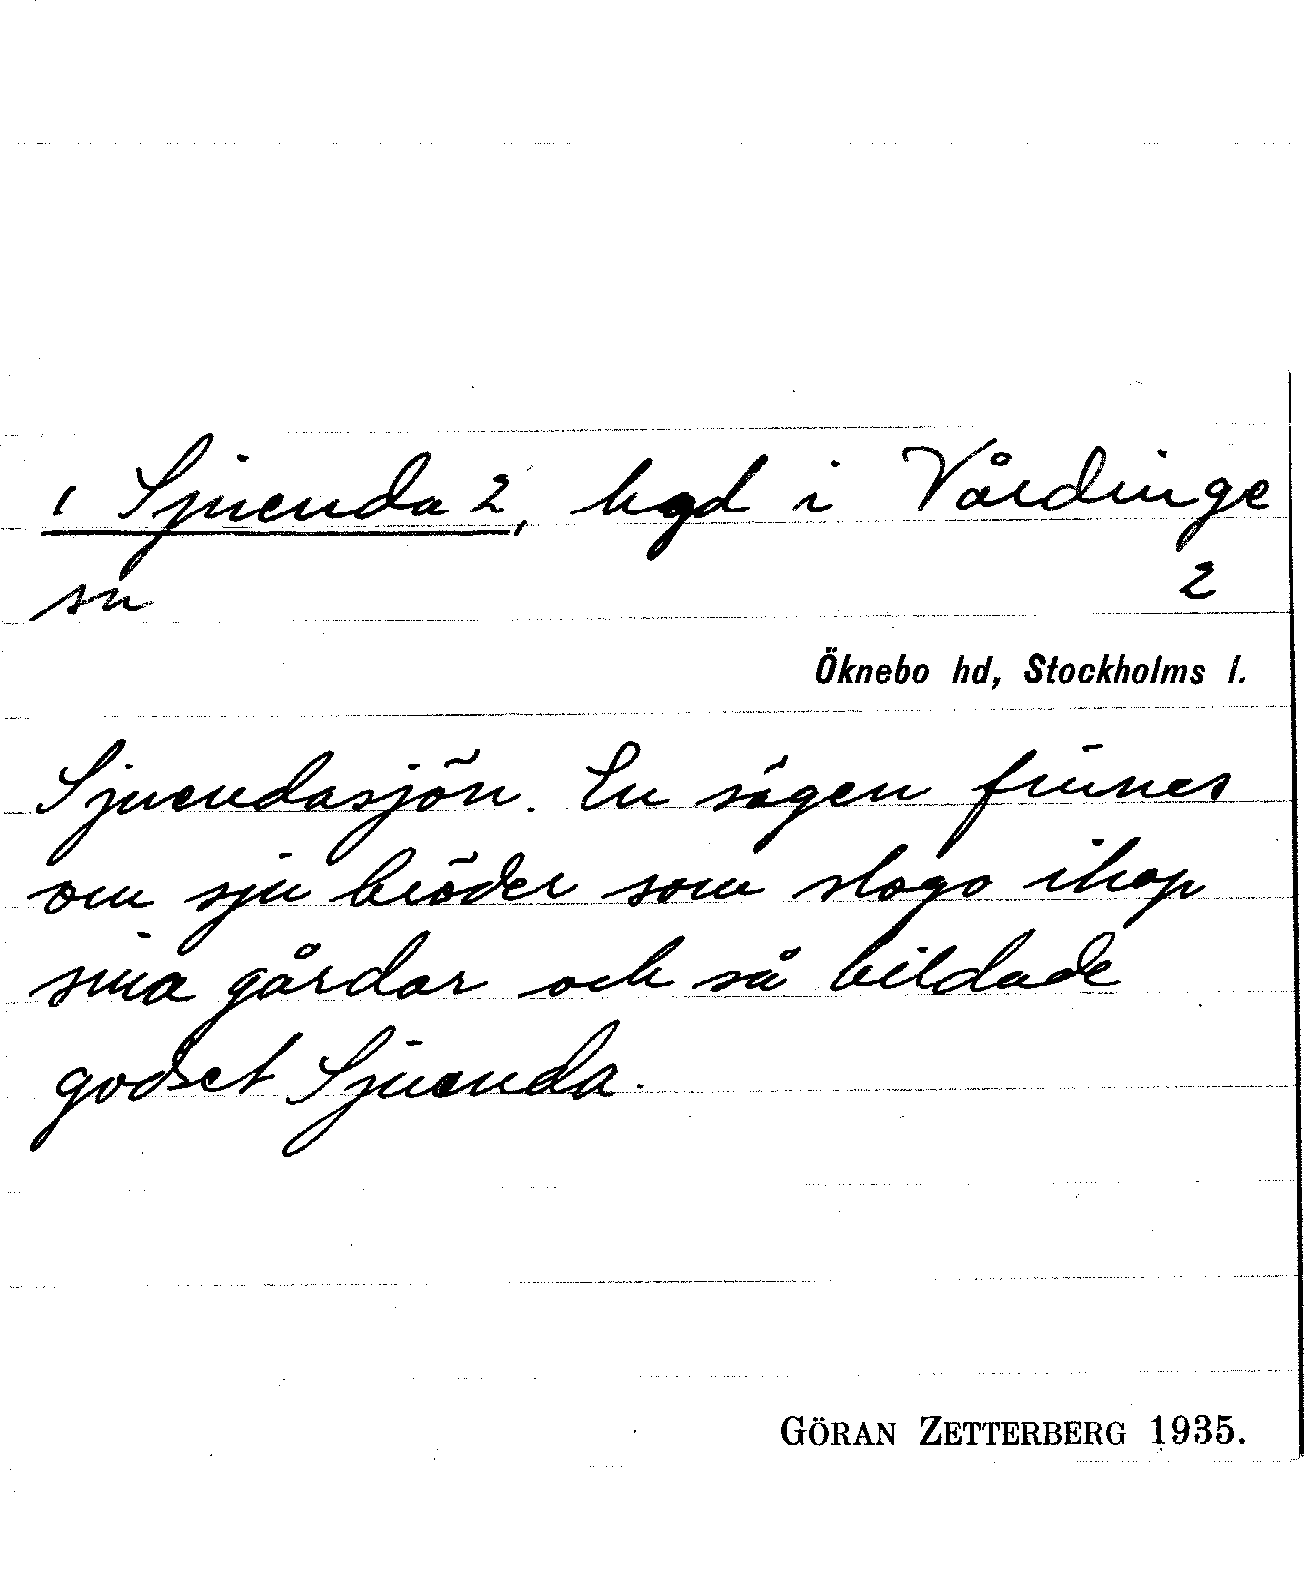 1 Sjuenda 2, hgd i Vårdinge
sn 2
Öknebo hd, Stockholms l.
Sjuendasjön. En sägen finnes
om sju bröder som slogo ihop
sina gårdar och så bildade
godset Sjuenda.
GÖRAN ZETTERBERG 1935.